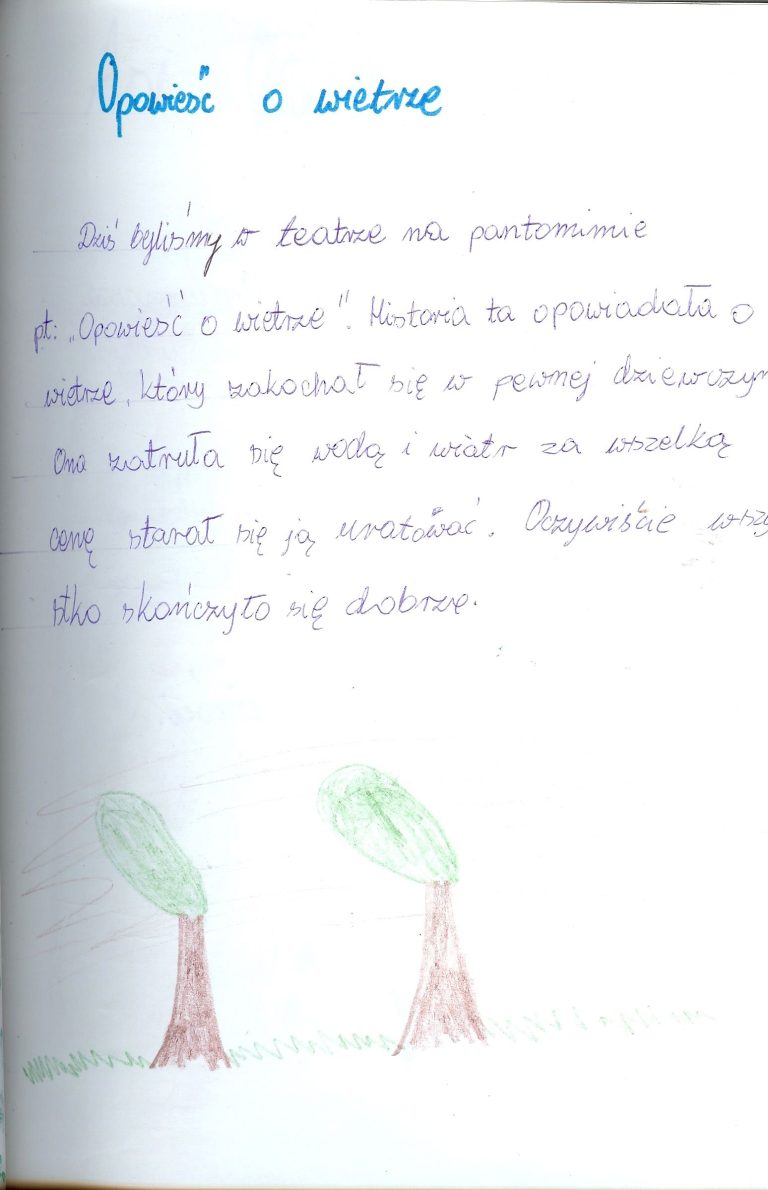 Opowieść o wietrze
Dziś byliśmy w teatrze na pantomimie
pt: „Opowieść o wietrze". Historia ta opowiadała o
wietrze, który zakochał się w pewnej dziewczyn
Ona zatruła się wodą i wiatr za wszelką
cenę starał się ją uratować. Oczywiście wszy
stko skończyło się dobrze.